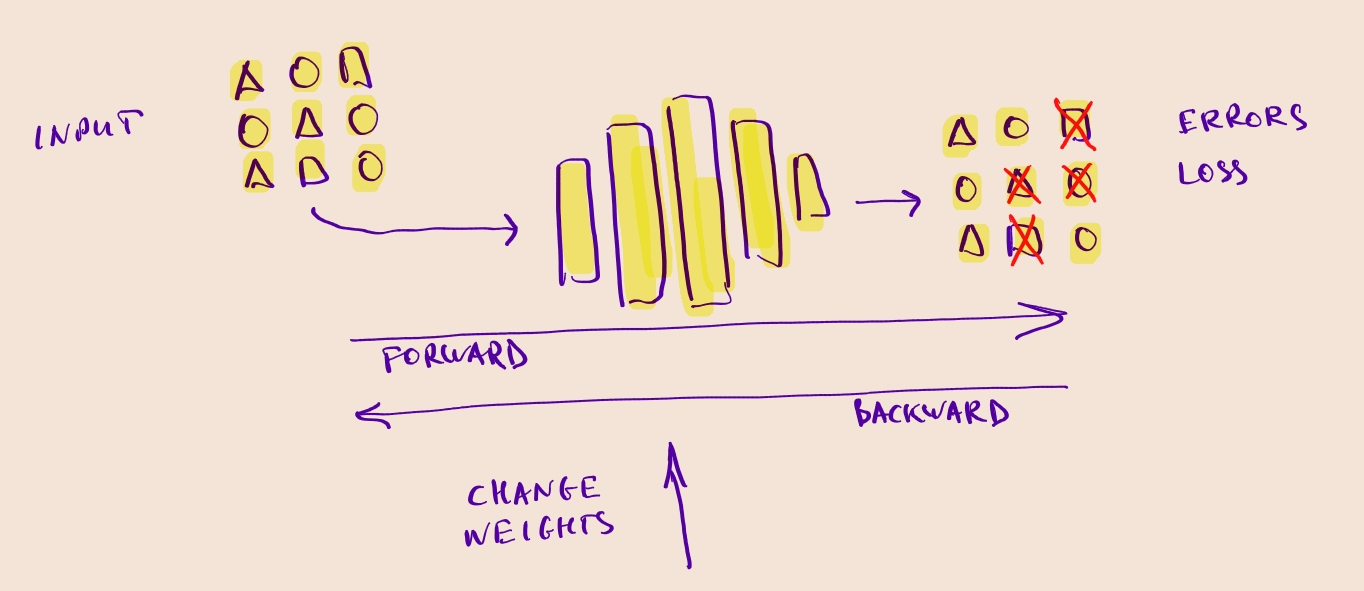 INPUT
ERRORS
LOSS
FORWARD
BACKWARD
CHANGE
WEIGHTS